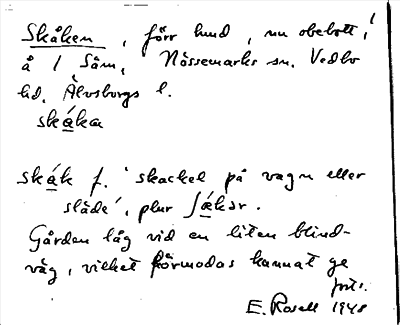 Skåken, förr hmd, nu obebott,
å 1 Såm, Nössemarks sn. Vedbo
hd. Älvsborgs l.
skåka
skåk f. 'skackel på vagn eller
släde', plur ʃækər.
Gården låg vid en liten blind-
väg, vilket förmodas kunnat ge
forts.
E. Rosell 1948